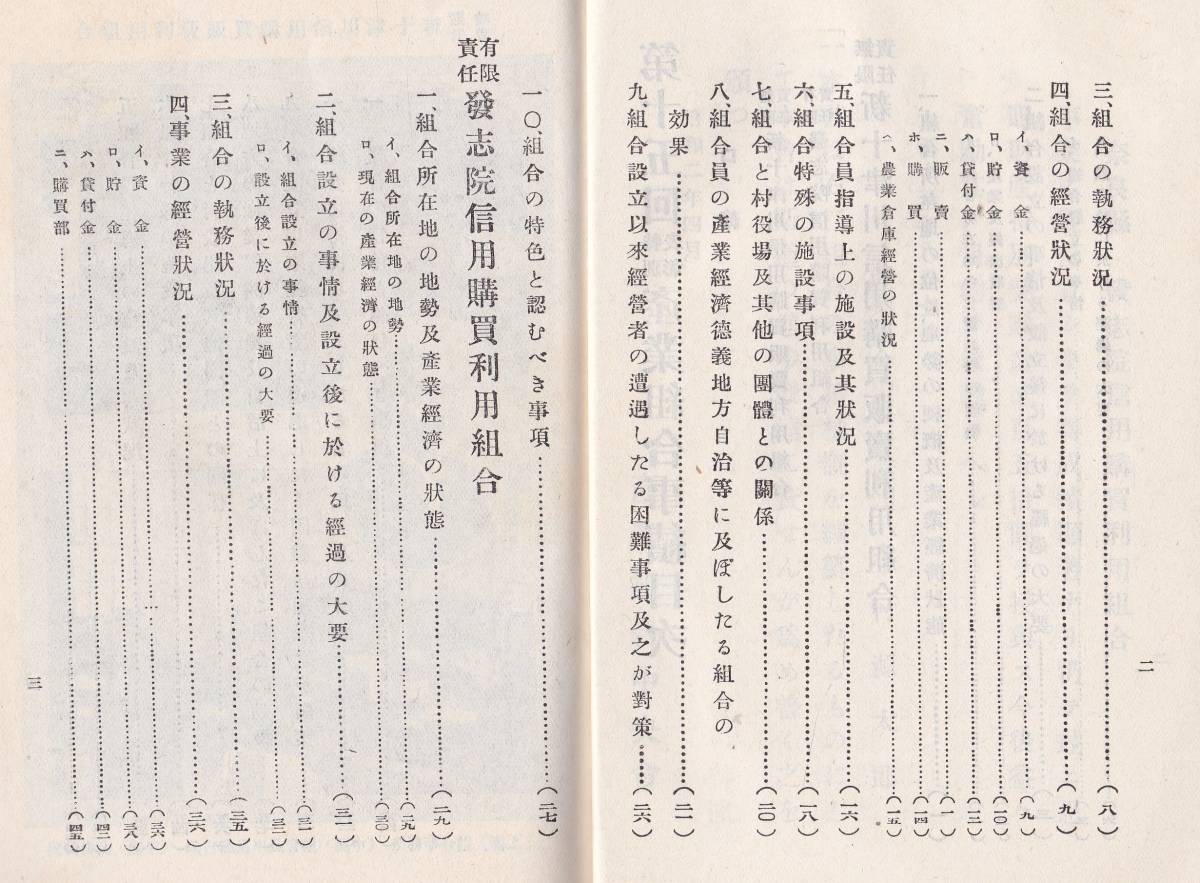 三、組合の執務狀況……（八）
四、組合の經營狀況……（九）
イ、資金……（九）
ロ、貯金……（一〇）
ハ、貸付金……（一二）
ニ、販賣……（一一）
ホ、購買……（一四）
ヘ、農業倉庫經營の狀況……（一五）
五、組合員指導上の施設及其狀況……（一六）
六、組合特殊の施設事項……（一八）
七、組合と村役場及其他の團體との關係……（二〇）
八、組合員の產業經濟德義地方自治等に及ぼしたる組合の
効果……（二一）
九、組合設立以來經營者の遭遇したる困難事項及之が對策……（二六）
二
一〇、組合の特色と認むべき事項……（二七）
有限責任 發志院信用購買利用組合
一、組合所在地の地勢及產業經濟の狀態……（二九）
イ、組合所在地の地勢……（二九）
ロ、現在の產業經濟の狀態……（三〇）
二、組合設立の事情及設立後に於ける經過の大要……（三一）
イ、組合設立の事情……（三一）
ロ、設立後に於ける經過の大要……（三二）
三、組合の執務狀況……（三五）
四、事業の經營狀況……（三六）
イ、資金……（三六）
ロ、貯金……（三八）
ハ、貸付金……（四二）
ニ、購買部……（四五）
三